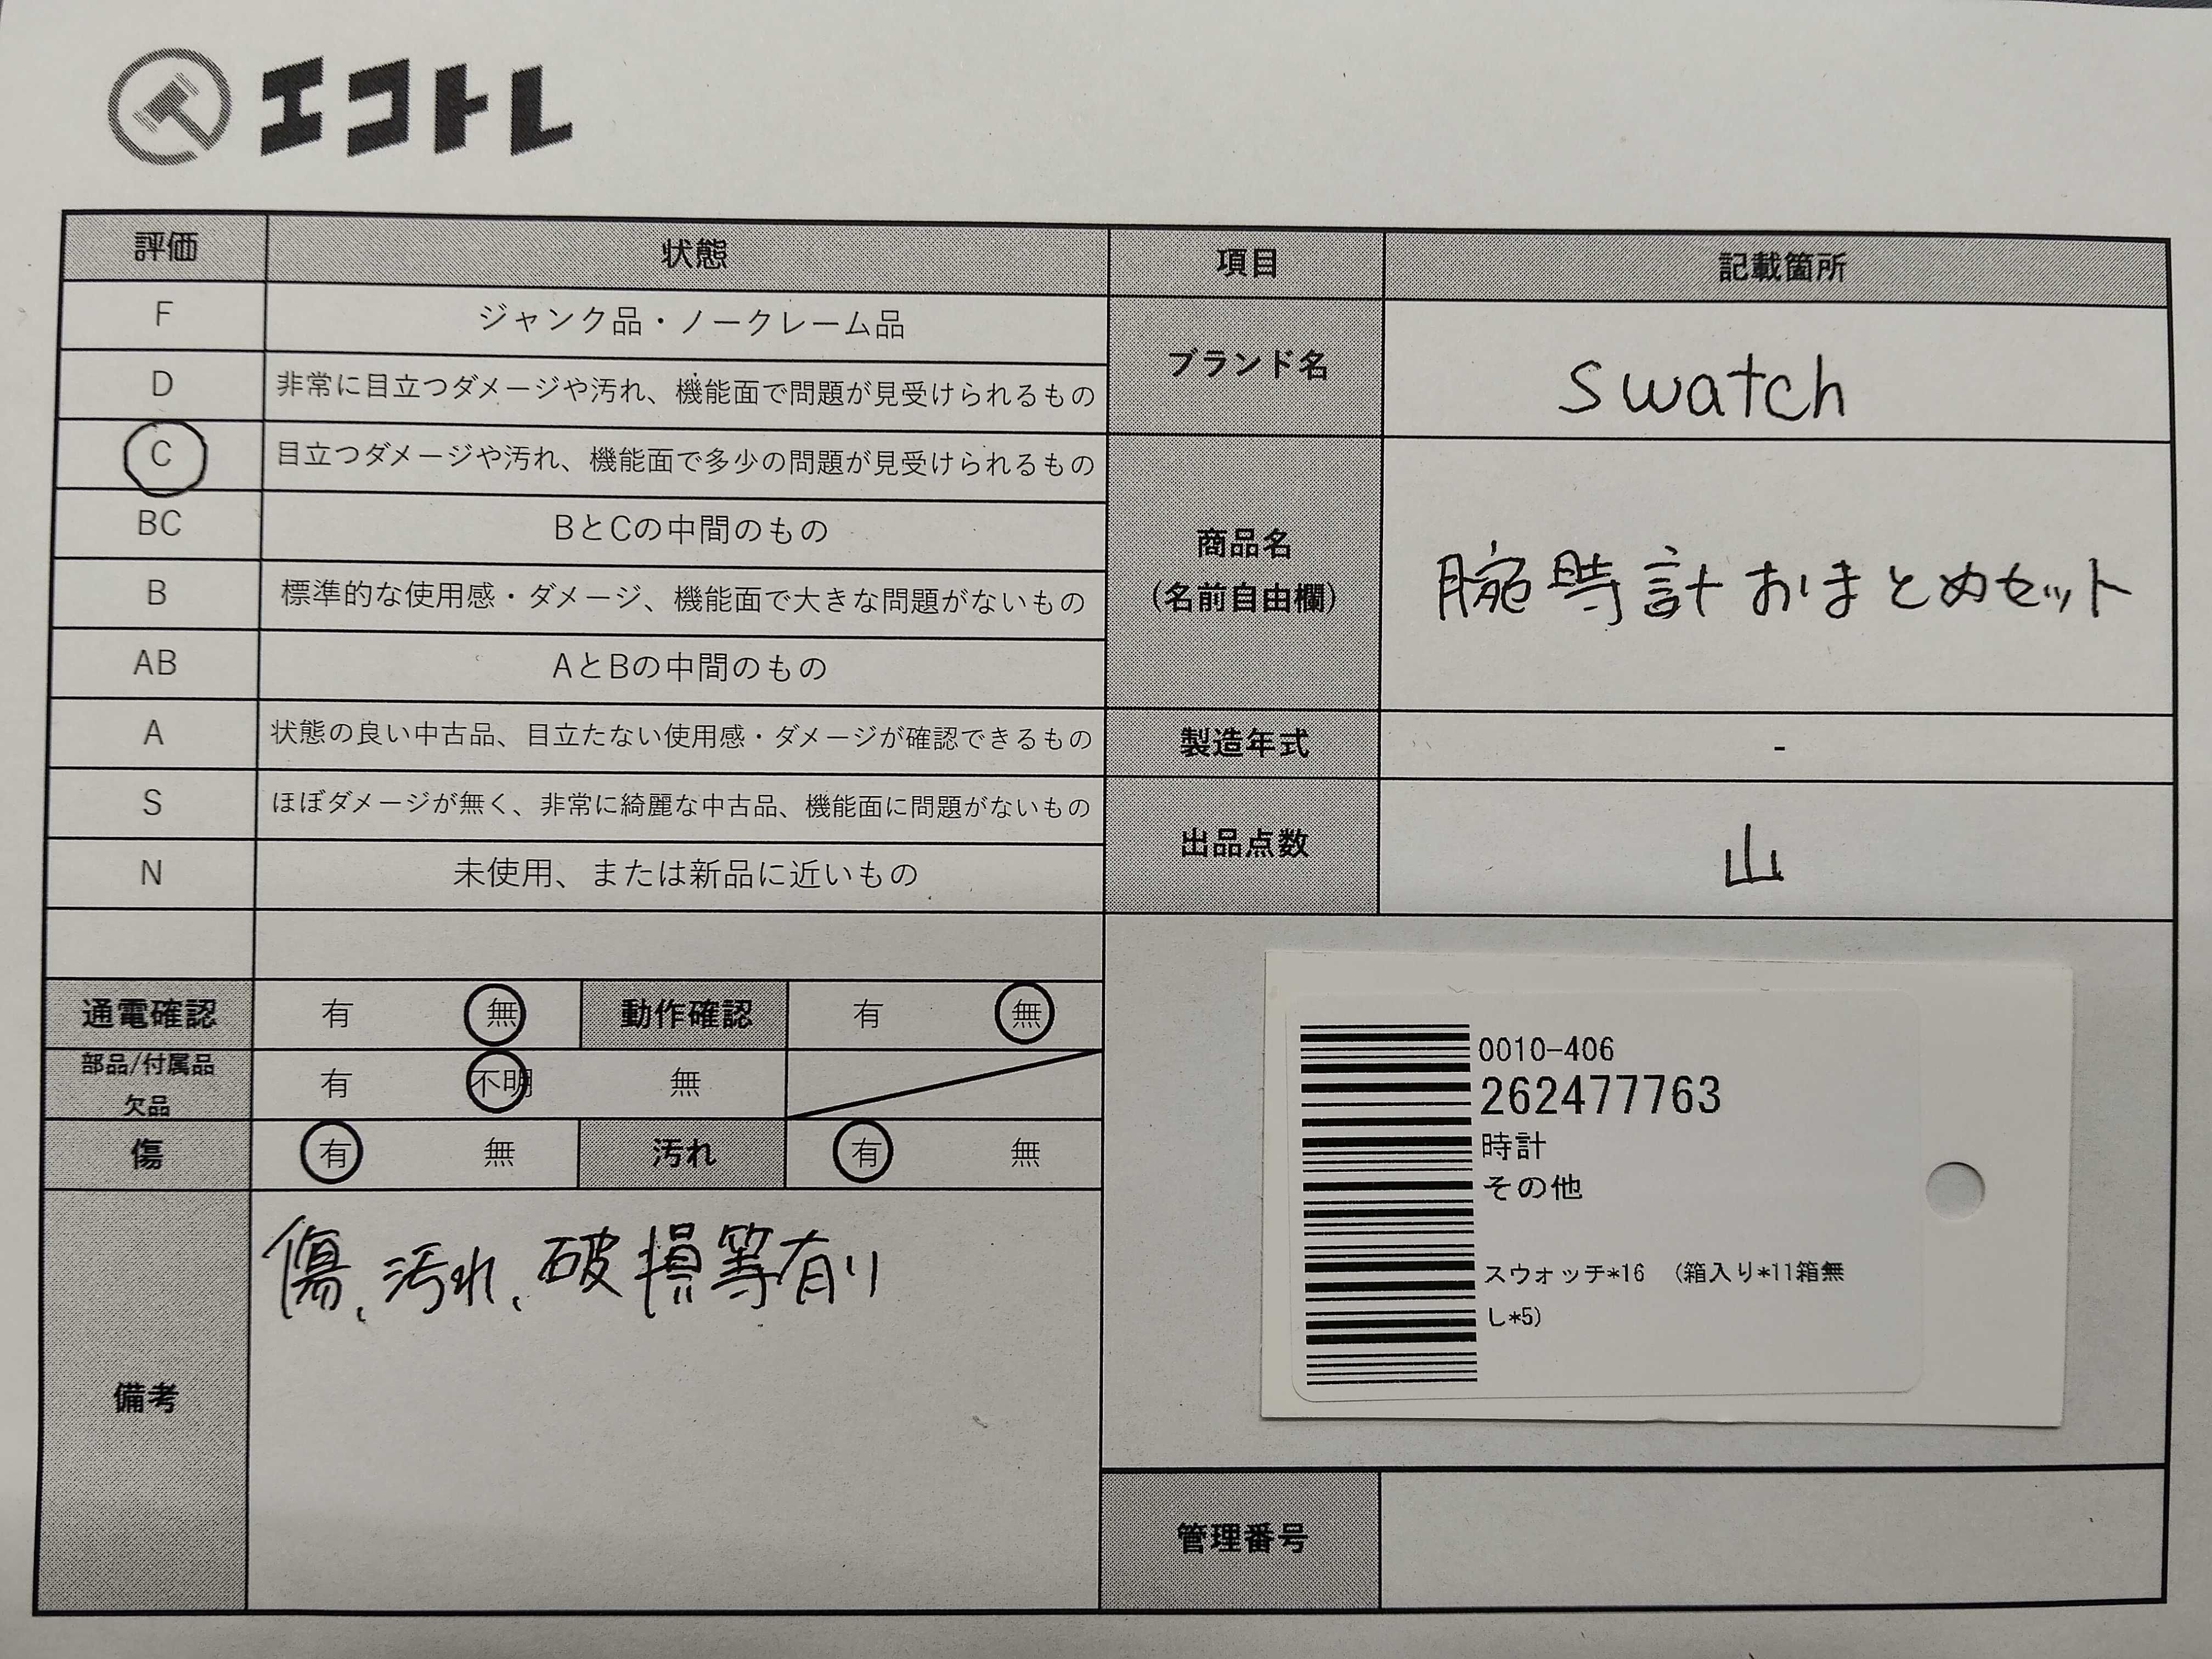 エコトレ
評価 状態 項目 記載箇所
F ジャンク品・ノークレーム品
D 非常に目立つダメージや汚れ、機能面で問題が見受けられるもの
C 目立つダメージや汚れ、機能面で多少の問題が見受けられるもの
BC BとCの中間のもの
B 標準的な使用感・ダメージ、機能面で大きな問題がないもの
AB AとBの中間のもの
A 状態の良い中古品、目立たない使用感・ダメージが確認できるもの
S ほぼダメージが無く、非常に綺麗な中古品、機能面に問題がないもの
N 未使用、または新品に近いもの
ブランド名 swatch
商品名
(名前自由欄)
腕時計おまとめセット
製造年式 -
出品点数 山
通電確認 有 無 動作確認 有 無
部品/付属品
欠品
有 不明 無
傷 有 無 汚れ 有 無
備考
傷、汚れ、破損等有り
0010-406
262477763
時計
その他
スウォッチ*16 (箱入り*11箱無
し*5)
管理番号